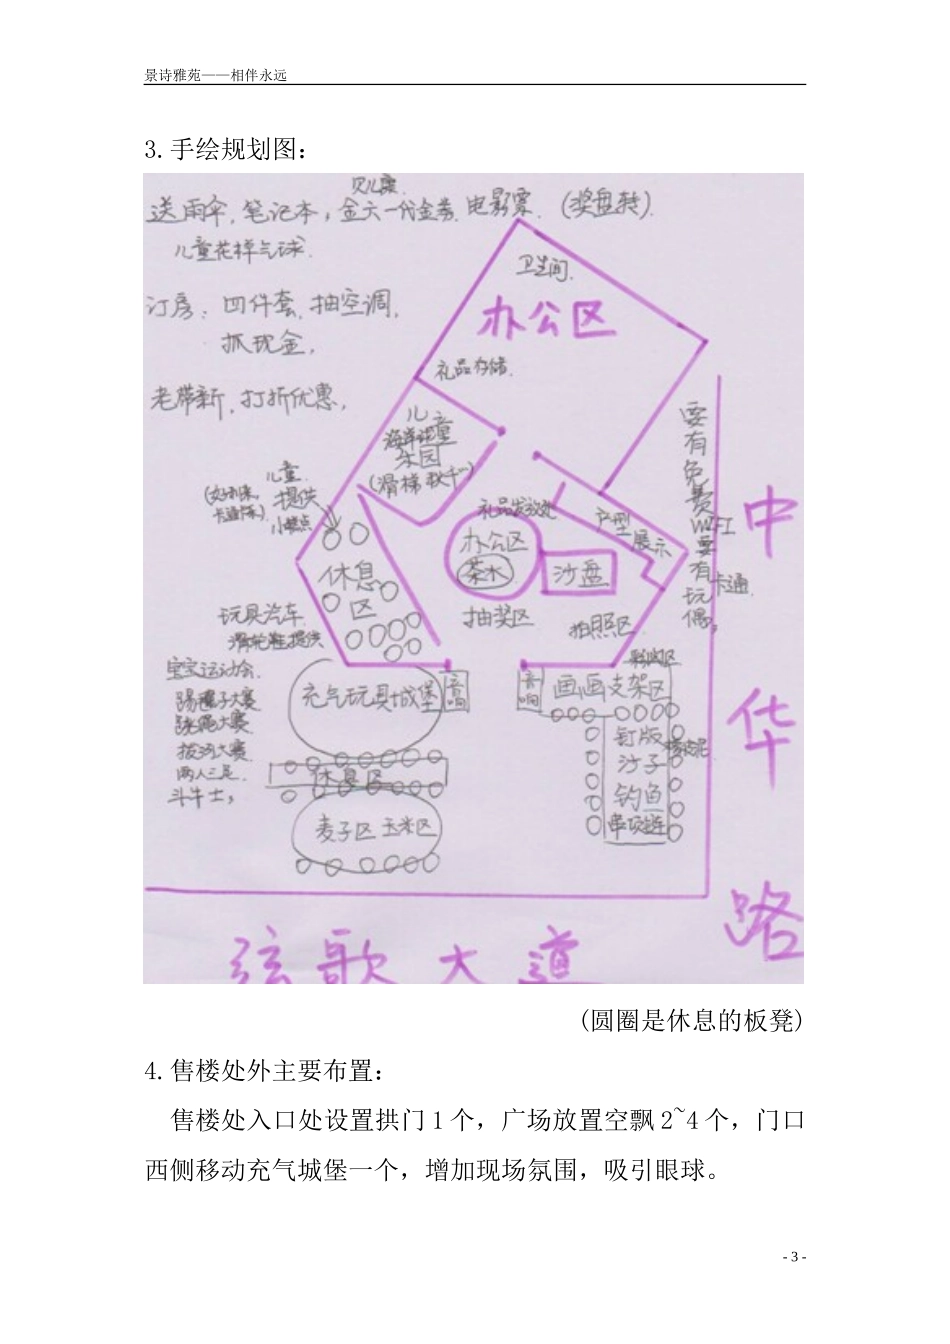 景诗雅苑——相伴永远
3.手绘规划图：
送雨伞，笔记本，金六一代金券，电影票，(奖盘转)
儿童花样气球
订房：四件套，抽空调，
抓现金，
老带新，打折优惠，
卫生间
办公区
礼品存储
儿童
乐园
(滑梯 秋千)
儿童
提供
小糕点
休息
区
礼品发放处
办公区
茶水
沙盘
抽奖区
拍照区
户型
展示
要有免费WIFI
要有卡通玩偶，
中华路
玩具汽车
滑轮鞋提供
宝宝运动会
踢毽子大赛
跳绳大赛
拔河大赛
两人三足
斗牛士，
充气玩具城堡
音响
音响
画画支架区
钉版
沙子
钓鱼
串项链
休息区
麦子区 玉米区
弦歌大道
(圆圈是休息的板凳)
4.售楼处外主要布置：
售楼处入口处设置拱门1个，广场放置空飘2~4个，门口
西侧移动充气城堡一个，增加现场氛围，吸引眼球。
- 3 -